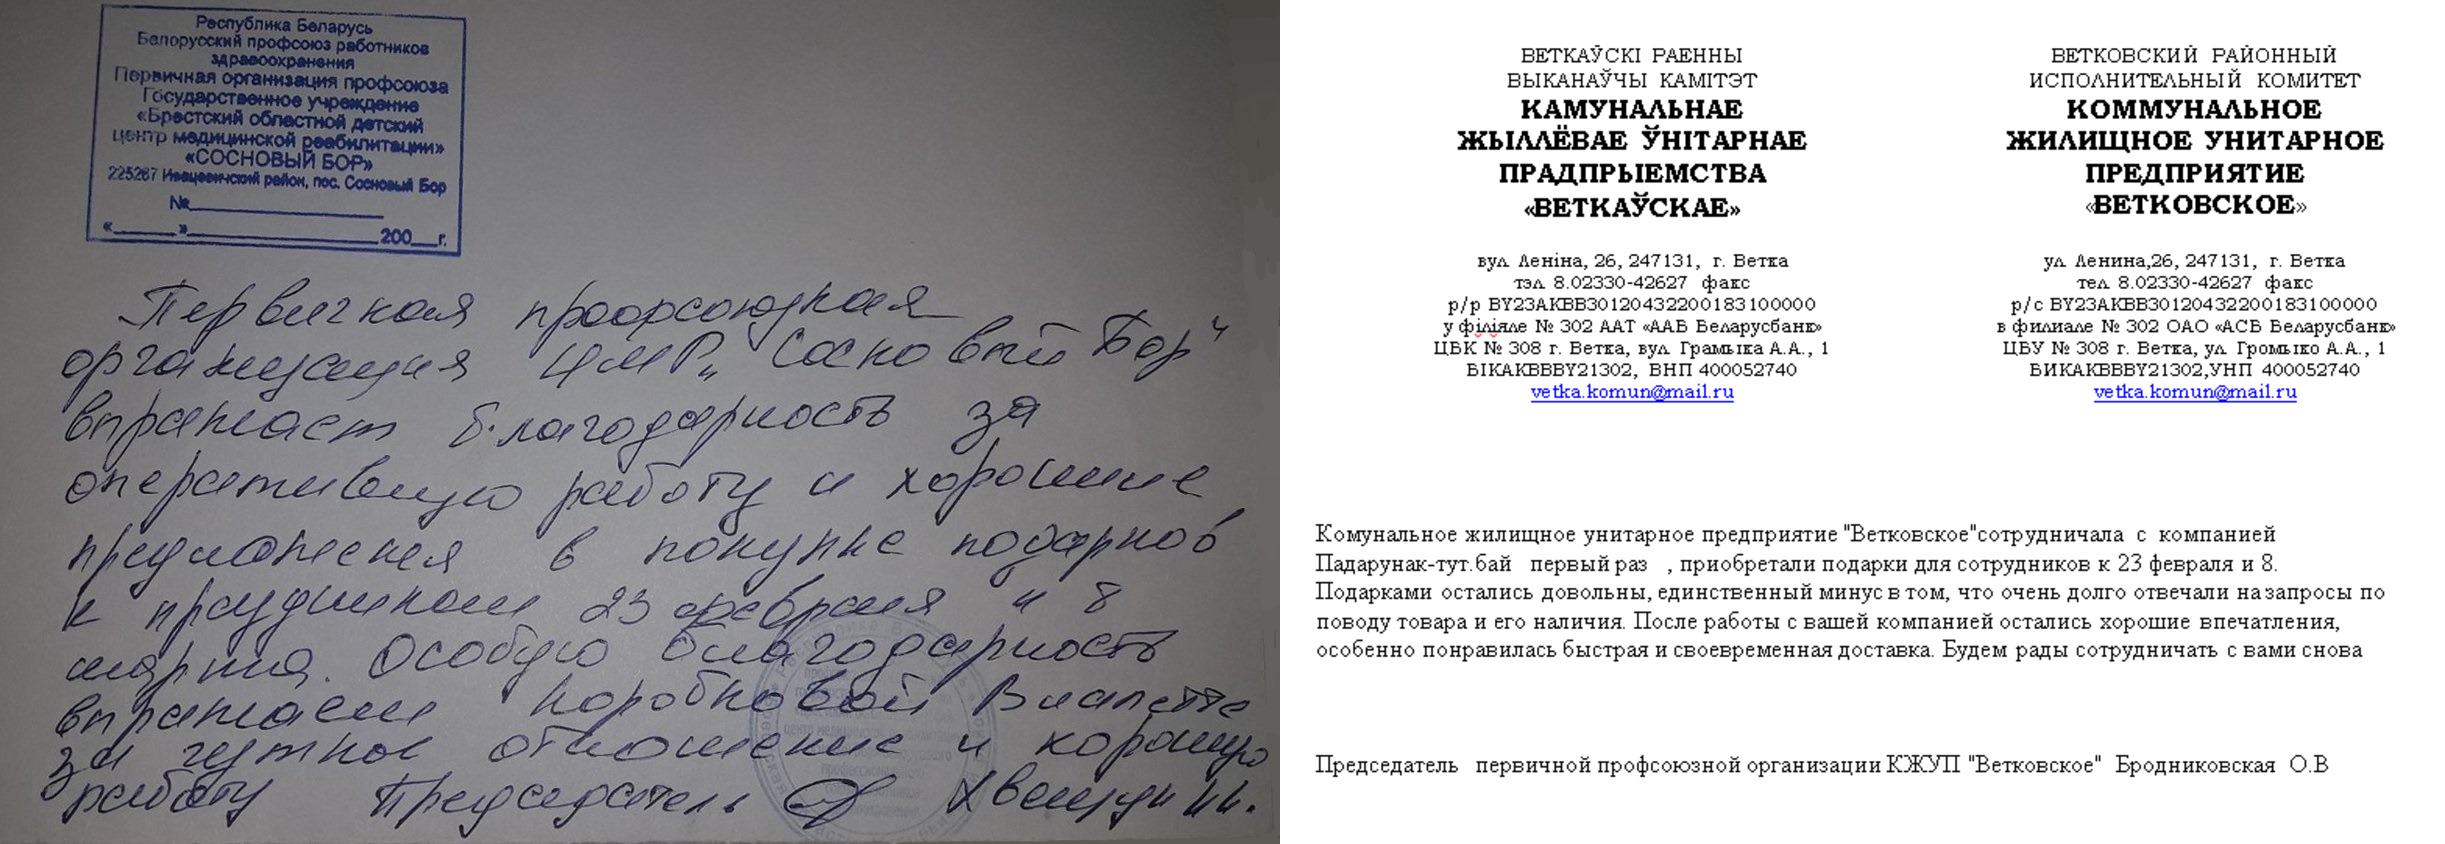 Республика Беларусь
Белорусский профсоюз работников
здравоохранения
Первичная организация профсоюза
Государственное учреждение
«Брестский областной детский
центр медицинской реабилитации»
«СОСНОВЫЙ БОР»
225287 Ивацевичский район, пос. Сосновый Бор
№
« » 200 г.
Первичная профсоюзная
организация ЦМР „Сосновый Бор"
выражает благодарность за
оперативную работу и хорошие
предложения в покупке подарков
к праздникам 23 февраля и 8
марта. Особую благодарность
выражаем Коробковой Виалетте
за чуткое отношение и хорошую
работу Председатель
ВЕТКАЎСКІ РАЕННЫ
ВЫКАНАЎЧЫ КАМІТЭТ
КАМУНАЛЬНАЕ
ЖЫЛЛЁВАЕ ЎНІТАРНАЕ
ПРАДПРЫЕМСТВА
«ВЕТКАЎСКАЕ»
вул. Леніна, 26, 247131, г. Ветка
тэл. 8.02330-42627 факс
р/р BY23AKBB30120432200183100000
у філіяле № 302 ААТ «ААБ Беларусбанк»
ЦБК № 308 г. Ветка, вул. Грамыка А.А., 1
БІКAKBBBY21302, ВНП 400052740
vetka.komun@mail.ru
ВЕТКОВСКИЙ РАЙОННЫЙ
ИСПОЛНИТЕЛЬНЫЙ КОМИТЕТ
КОММУНАЛЬНОЕ
ЖИЛИЩНОЕ УНИТАРНОЕ
ПРЕДПРИЯТИЕ
«ВЕТКОВСКОЕ»
ул. Ленина,26, 247131, г. Ветка
тел. 8.02330-42627 факс
р/с BY23AKBB30120432200183100000
в филиале № 302 ОАО «АСБ Беларусбанк»
ЦБУ № 308 г. Ветка, ул. Громыко А.А., 1
БИКAKBBBY21302,УНП 400052740
vetka.komun@mail.ru
Комунальное жилищное унитарное предприятие "Ветковское"сотрудничала с компанией
Падарунак-тут.бай первый раз , приобретали подарки для сотрудников к 23 февраля и 8.
Подарками остались довольны, единственный минус в том, что очень долго отвечали на запросы по
поводу товара и его наличия. После работы с вашей компанией остались хорошие впечатления,
особенно понравилась быстрая и своевременная доставка. Будем рады сотрудничать с вами снова
Председатель первичной профсоюзной организации КЖУП "Ветковское" Бродниковская О.В